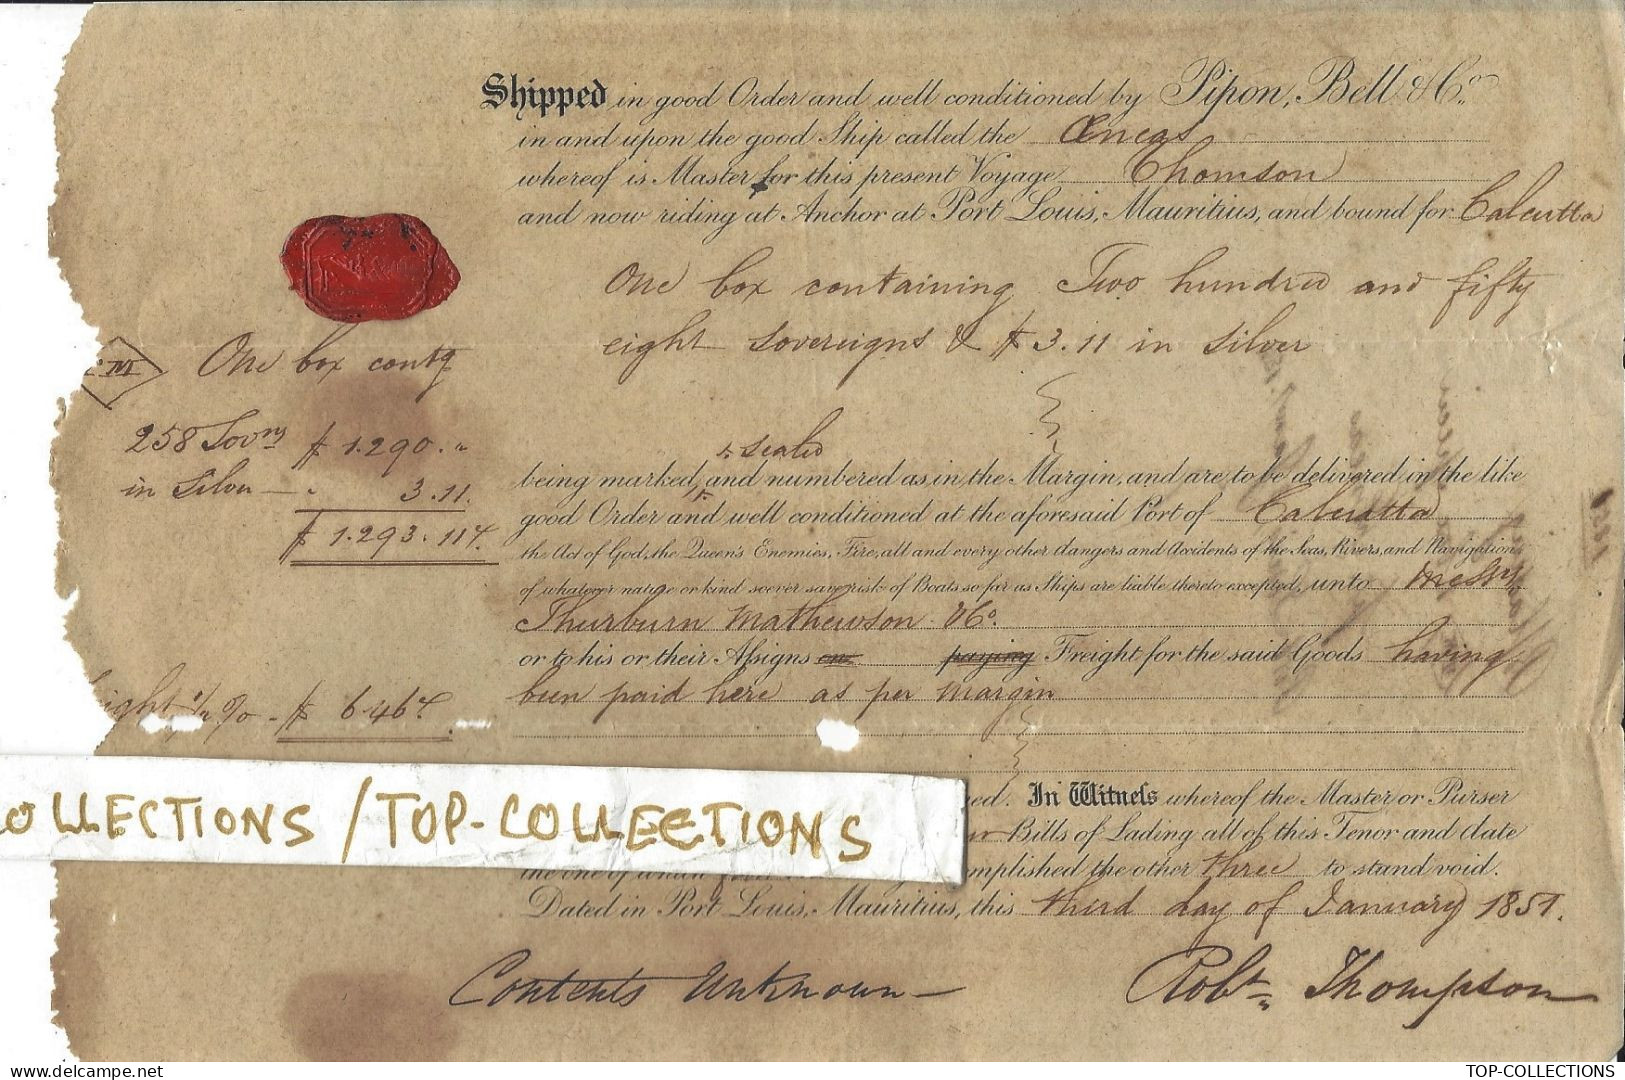 Shipped in good Order and well conditioned by Pipon, Bell & Co.
in and upon the good Ship called the Œneas
whereof is Master for this present Voyage Thomson
and now riding at Anchor at Port Louis, Mauritius, and bound for Calcutta
One box containing Two hundred and fifty
eight sovereigns & $ 3.11 in silver
M One box contg
258 Sovns $ 1.290. "
in Silver — " 3.11.
$ 1.293.11
& sealed
being marked, and numbered as in the Margin, and are to be delivered in the like
good Order and well conditioned at the aforesaid Port of Calcutta
the Act of God, the Queen's Enemies, Fire, all and every other dangers and Accidents of the Seas, Rivers, and Navigations
of whatever nature or kind soever save risk of Boats so far as Ships are liable thereto excepted, unto Messrs
Thurburn Mathewson & Co.
or to his or their Assigns paying Freight for the said Goods having
been paid here as per margin
ight ½ % - $ 6.46
OLLECTIONS / TOP-COLLECTIONS
ed. In Witness whereof the Master or Purser
Bills of Lading all of this Tenor and date
the one of which mplished the other three to stand void.
Dated in Port Louis, Mauritius, this third day of January 1851.
Contents Unknown — Robt. Thompson
TOP-COLLECTIONS
delcampe.net